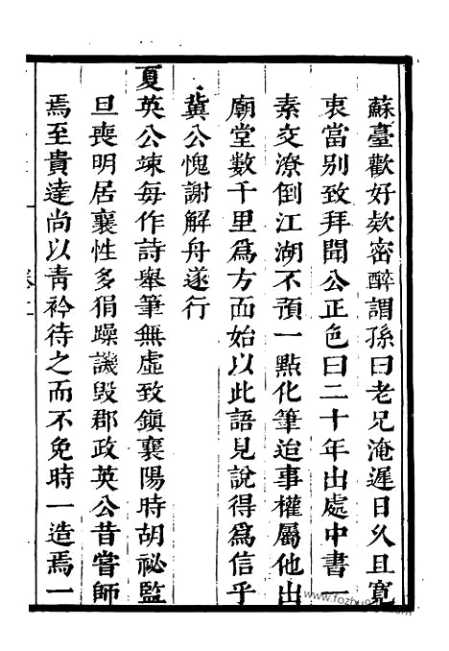 蘇臺歡好欵密醉謂孫曰老兄淹遲日久且寬
衷當别致拜聞公正色曰二十年出處中書一
素交潦倒江湖不預一點化筆迨事權屬他出
廟堂數千里爲方面始以此語見說得爲信乎
冀公愧謝解舟遂行
夏英公竦每作詩舉筆無虛致鎭襄陽時胡祕監
旦喪明居襄性多狷躁譏毀郡政英公昔嘗師
焉至貴達尚以青衿待之而不免時一造焉一
www.fozhu